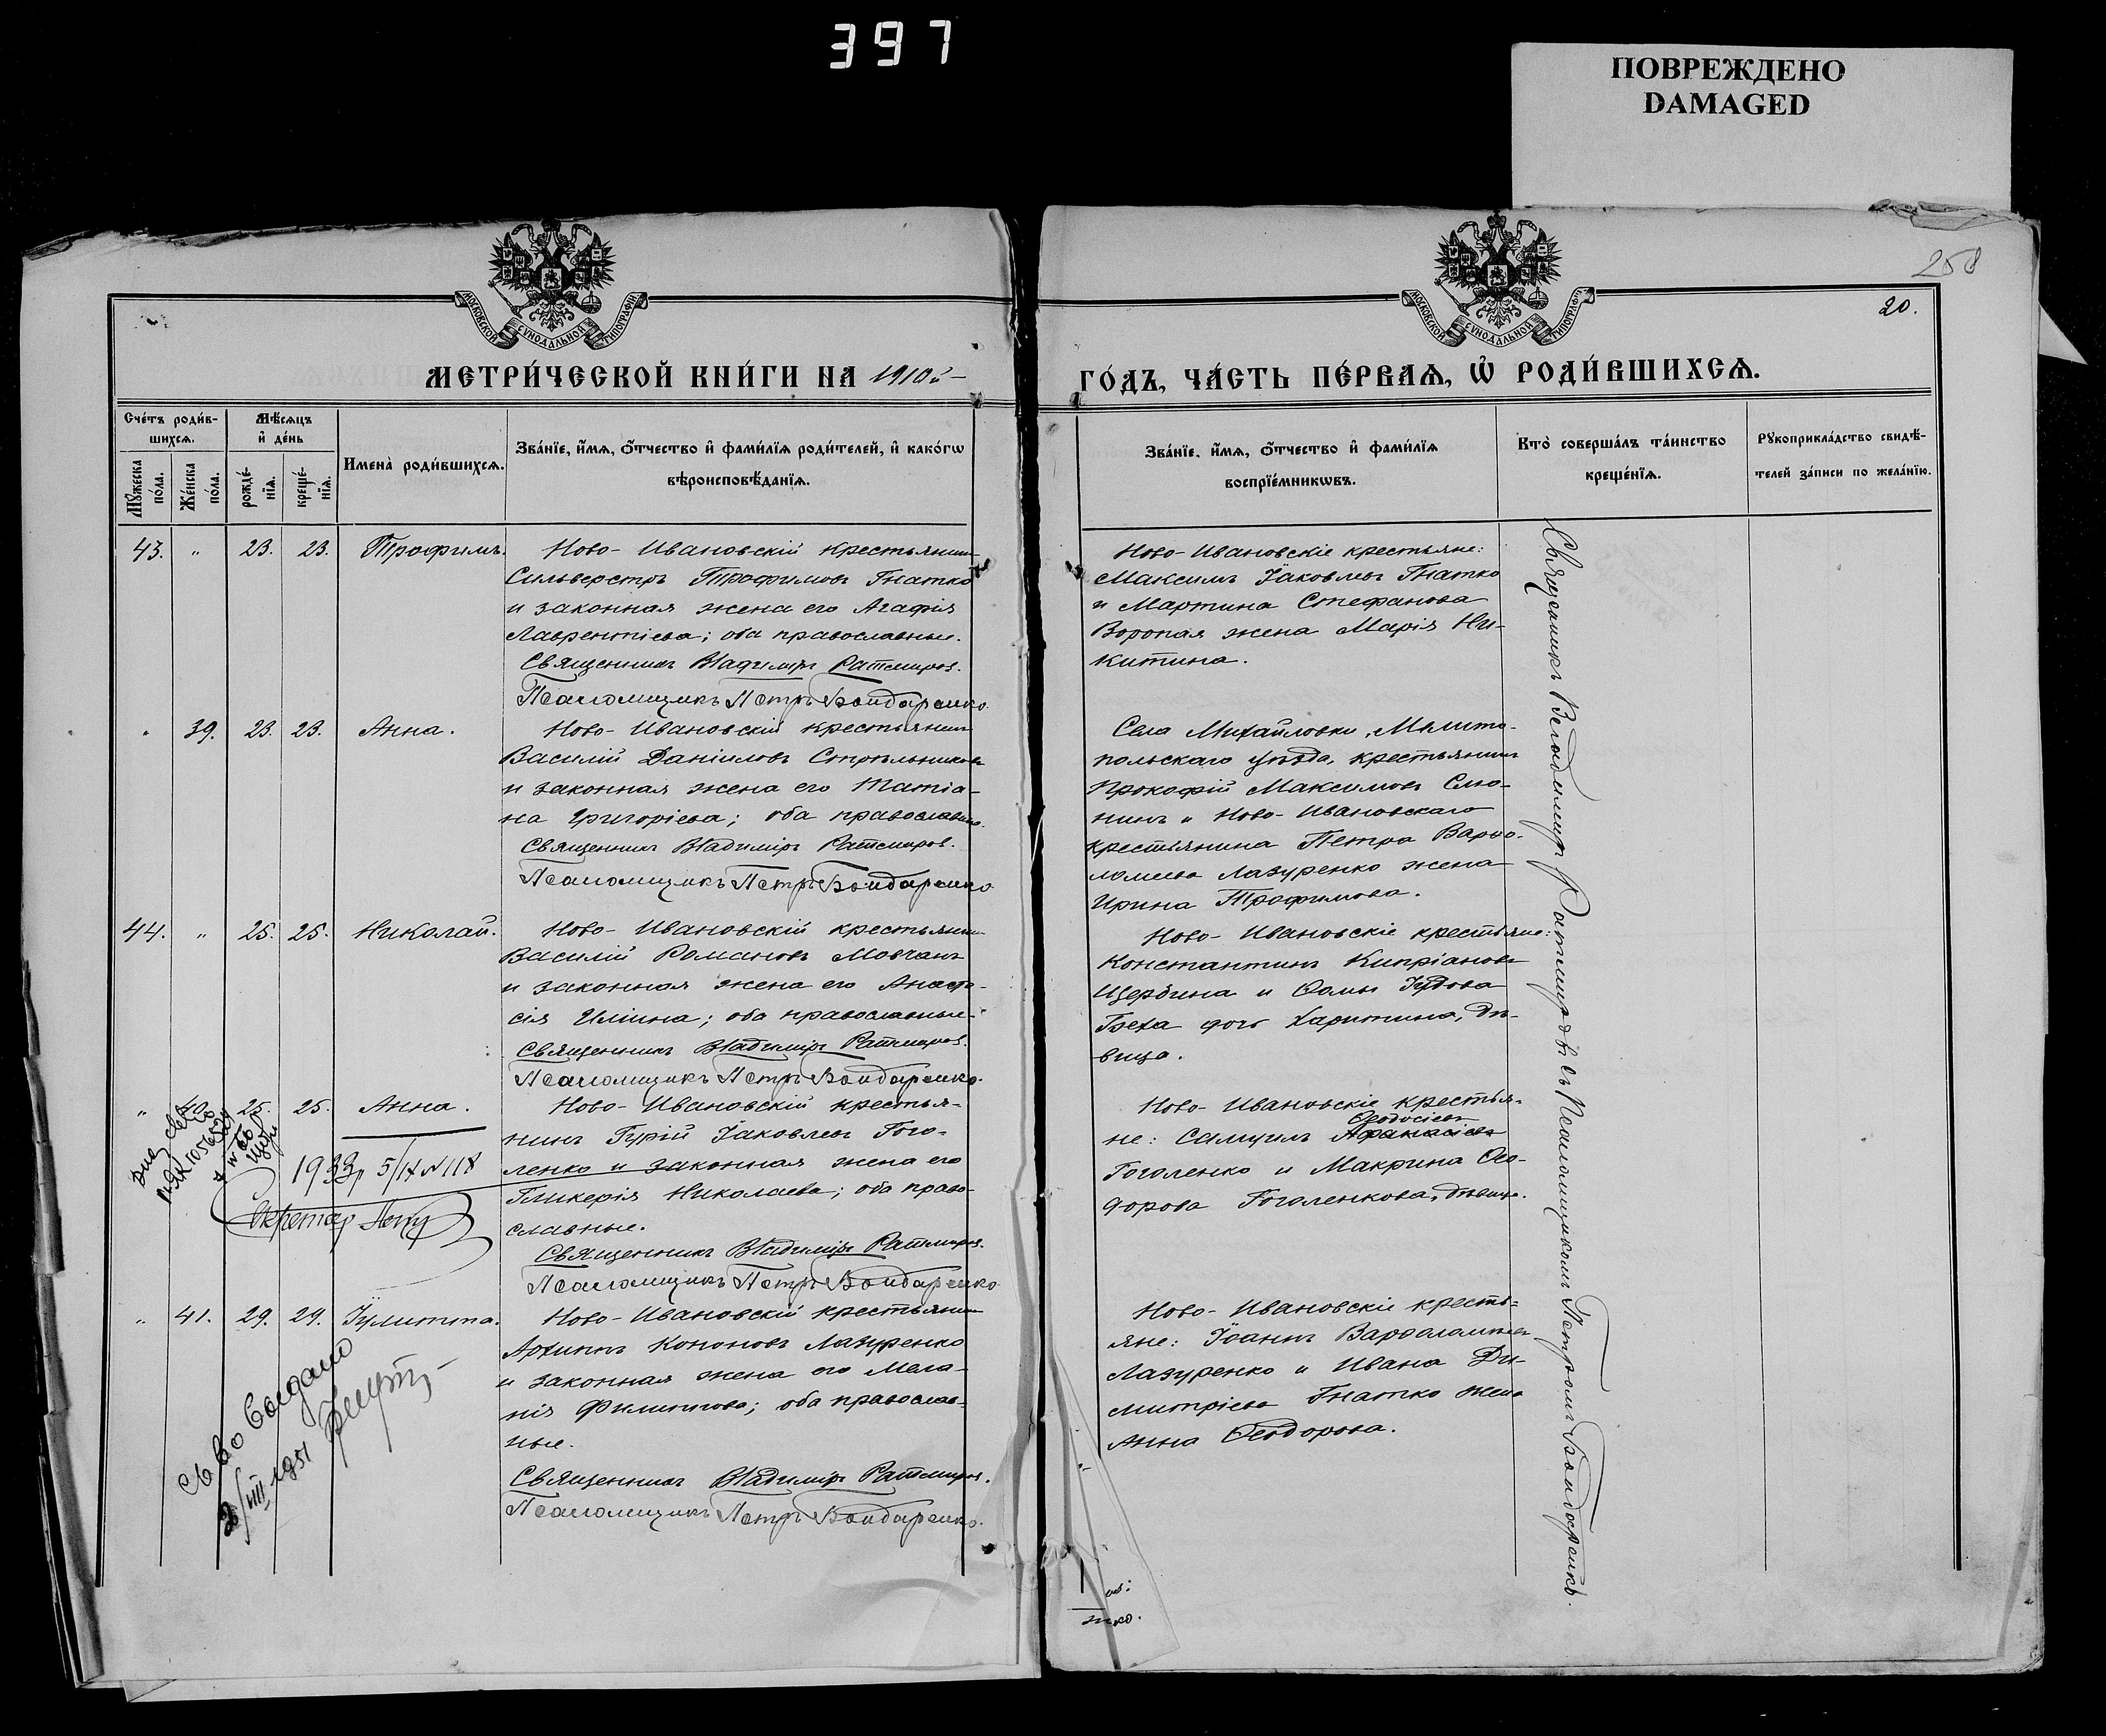 397
ПОВРЕЖДЕНО
DAMAGED
258
20.
МОСКОВСКОЙ СѴНОДАЛЬНОЙ ТИПОГРАФІИ
МОСКОВСКОЙ СѴНОДАЛЬНОЙ ТИПОГРАФІИ
МЕТРИ́ЧЕСКОЙ КНИ́ГИ НА 1910й
ГО́ДЪ, ЧА́СТЬ ПЕ́РВАѦ, Ѡ҆ РОДИ́ВШИХСѦ.
Сче́тъ роди́в-
шихсѧ.
Мѣ́сѧцъ
и҆ де́нь
Мꙋ́жеска по́ла.
Же́нска по́ла.
рожде́-нїѧ.
креще́-нїѧ.
Имена̀ роди́вшихсѧ.
Зва́нїе, и҆́мѧ, ѻ҆́тчество и҆ фами́лїѧ роди́телей, и҆ како́гѡ
вѣроисповѣ́данїѧ.
Зва́нїе, и҆́мѧ, ѻ҆́тчество и҆ фами́лїѧ
воспрїе́мникѡвъ.
Кто̀ соверша́лъ та́инство
креще́нїѧ.
Рꙋкоприкла́дство свидѣ́-
телей за́писи по жела́нїю.
43. " 23. 23. Трофимъ.
Ново-Ивановскій крестьянинъ
Сильверстръ Трофимовъ Гнатко
и законная жена его Агафія
Лаврентіева; оба православные.
Священникъ Владиміръ Ратмиров.
Псаломщикъ Петръ Бондаренко.
Ново-Ивановскіе крестьяне:
Максимъ Іаковлевъ Гнатко
и Мартина Стефанова
Воропая жена Марія Ни-
китина.
" 39. 23. 23. Анна.
Ново-Ивановскій крестьянинъ
Василій Даніиловъ Стрѣльниковъ
и законная жена его Татіа-
на Григоріева; оба православные.
Священникъ Владиміръ Ратмиров.
Псаломщикъ Петръ Бондаренко.
Села Михайловки, Мелито-
польскаго уѣзда, крестьянинъ
Прокофій Максимовъ Слю-
нинъ и Ново-Ивановскаго
крестьянина Петра Варѳо-
ломеева Лазуренко жена
Ирина Трофимова.
44. " 25. 25. Николай.
Ново-Ивановскій крестьянинъ
Василій Романовъ Мовчанъ
и законная жена его Анаста-
сія Иліина; оба православные.
Священникъ Владиміръ Ратмиров.
Псаломщикъ Петръ Бондаренко.
Ново-Ивановскіе крестьяне:
Константинъ Кипріановъ
Щербина и Ѳомы Іудова
дочь Харитина, дѣ-
вица.
" 40. 25. 25. Анна.
Ново-Ивановскій крестья-
нинъ Гурій Іаковлевъ Гого-
ленко и законная жена его
Гликерія Николаева; оба право-
славные.
Священникъ Владиміръ Ратмиров.
Псаломщикъ Петръ Бондаренко.
Ново-Ивановскіе крестья-
Ѳеодосіевъ
не: Самуилъ Аѳанасіевъ
Гоголенко и Макрина Ѳео-
дорова Гоголенкова, дѣвица.
1933р 5/IX №118
Секретар
" 41. 29. 29. Іулитта.
Ново-Ивановскій крестьянинъ
Архиппъ Кононовъ Лазуренко
и законная жена его Мела-
нія Филиппова; оба православ-
ные.
Священникъ Владиміръ Ратмиров.
Псаломщикъ Петръ Бондаренко.
Ново-Ивановскіе кресть-
яне: Іоаннъ Варѳоломеевъ
Лазуренко и Ивана Ди-
митріева Гнатко жена
Анна Ѳеодорова.
св во выдано
2/VIII 1951
Священникъ Владиміръ Ратмировъ съ Псаломщикомъ Петромъ Бондаренко.